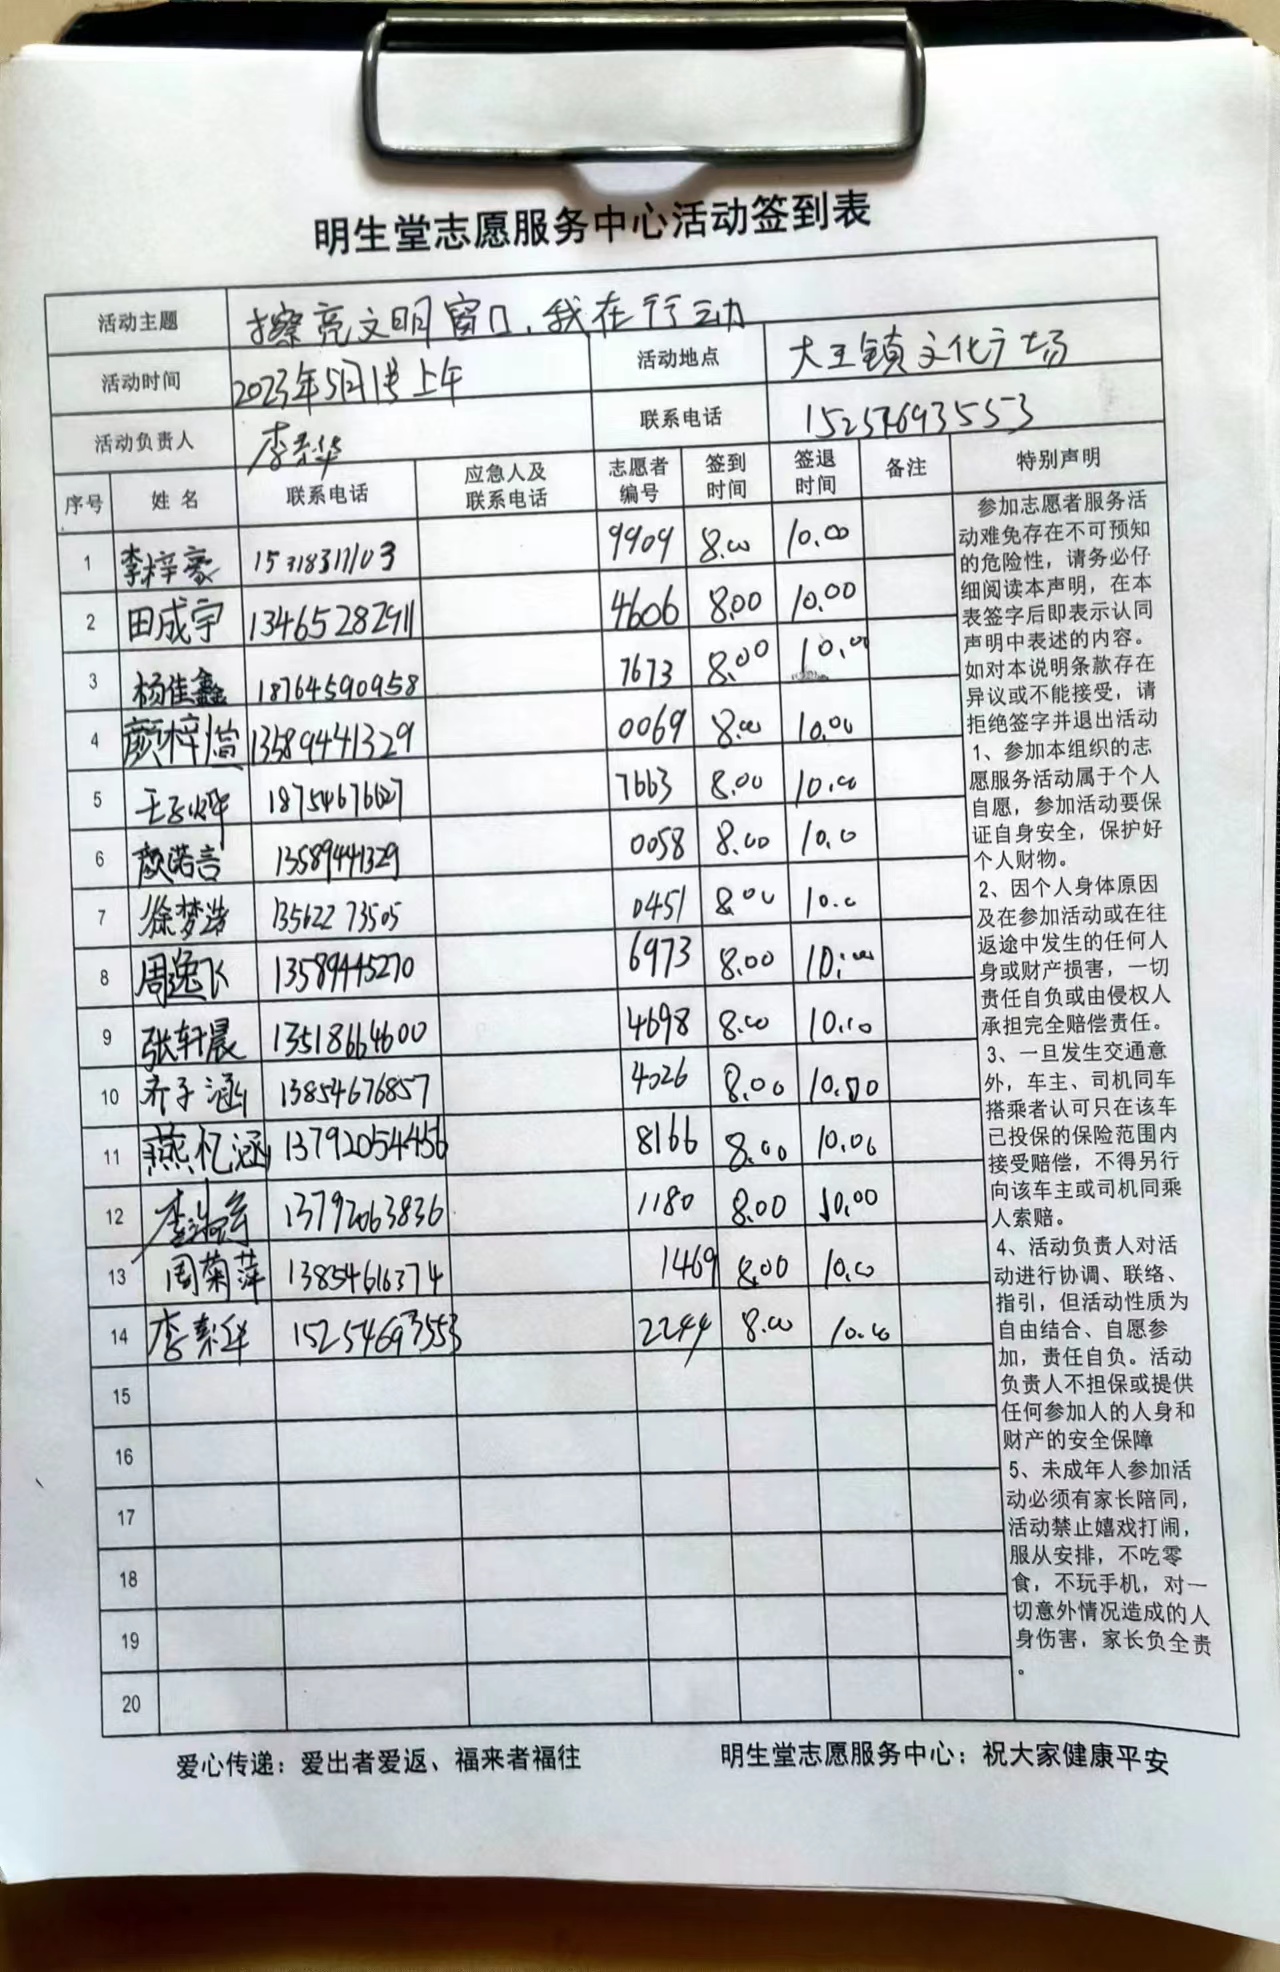 明生堂志愿服务中心活动签到表
活动主题 擦亮文明窗口,我在行动
活动时间 2023年5月1号上午 活动地点 大王镇文化广场
活动负责人 李素华 联系电话 15254693553
序号 姓名 联系电话 应急人及联系电话 志愿者编号 签到时间 签退时间 备注 特别声明
1 李梓豪 15318311103 9909 8.00 10.00
2 田成宇 13465282911 4606 8.00 10.00
3 杨佳鑫 18764590958 7673 8.00 10.00
4 颜梓煊 13589441329 0069 8.00 10.00
5 王子烨 18754676627 7663 8.00 10.00
6 颜诺言 13589441329 0058 8.00 10.0
7 徐梦浩 13562273505 0451 8.00 10.0
8 周逸飞 13589445270 6973 8.00 10:00
9 张轩晨 13518664600 4698 8.00 10.00
10 齐子涵 13854676857 4026 8.00 10.00
11 燕忆涵 13792054456 8166 8.00 10.00
12 李 13792063836 1180 8.00 10.00
13 周菊萍 13854616374 1469 8.00 10.00
14 李素华 15254693553 2244 8.00 10.00
15
16
17
18
19
20
参加志愿者服务活
动难免存在不可预知
的危险性，请务必仔
细阅读本声明，在本
表签字后即表示认同
声明中表述的内容。
如对本说明条款存在
异议或不能接受，请
拒绝签字并退出活动
1、参加本组织的志
愿服务活动属于个人
自愿，参加活动要保
证自身安全，保护好
个人财物。
2、因个人身体原因
及在参加活动或在往
返途中发生的任何人
身或财产损害，一切
责任自负或由侵权人
承担完全赔偿责任。
3、一旦发生交通意
外，车主、司机同车
搭乘者认可只在该车
已投保的保险范围内
接受赔偿，不得另行
向该车主或司机同乘
人索赔。
4、活动负责人对活
动进行协调、联络、
指引，但活动性质为
自由结合、自愿参
加，责任自负。活动
负责人不担保或提供
任何参加人的人身和
财产的安全保障
5、未成年人参加活
动必须有家长陪同，
活动禁止嬉戏打闹，
服从安排，不吃零
食，不玩手机，对一
切意外情况造成的人
身伤害，家长负全责
。
爱心传递：爱出者爱返、福来者福往 明生堂志愿服务中心：祝大家健康平安